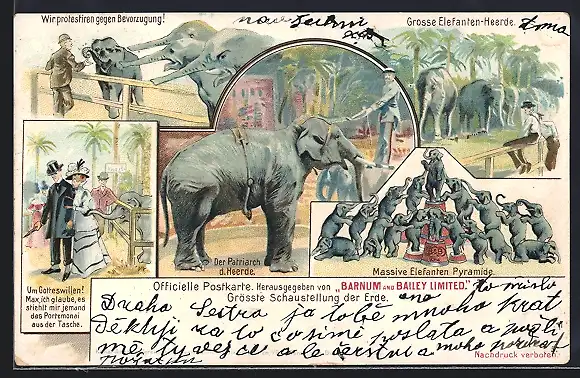 Wir protestiren gegen Bevorzugung!
Grosse Elefanten-Heerde.
doma
Der Patriarch
d. Heerde.
Massive Elefanten Pyramide.
Um Gotteswillen!
Max, ich glaube, es
stiehlt mir jemand
das Portemonai
aus der Tasche.
Officielle Postkarte. Herausgegeben von „BARNUM AND BAILEY LIMITED."
Grösste Schaustellung der Erde.
Draha Sestra ja tobě mnoho krat
děkuji za to co si mě poslala a
mě ty vejce a le čerstva moho
Nachdruck verboten.